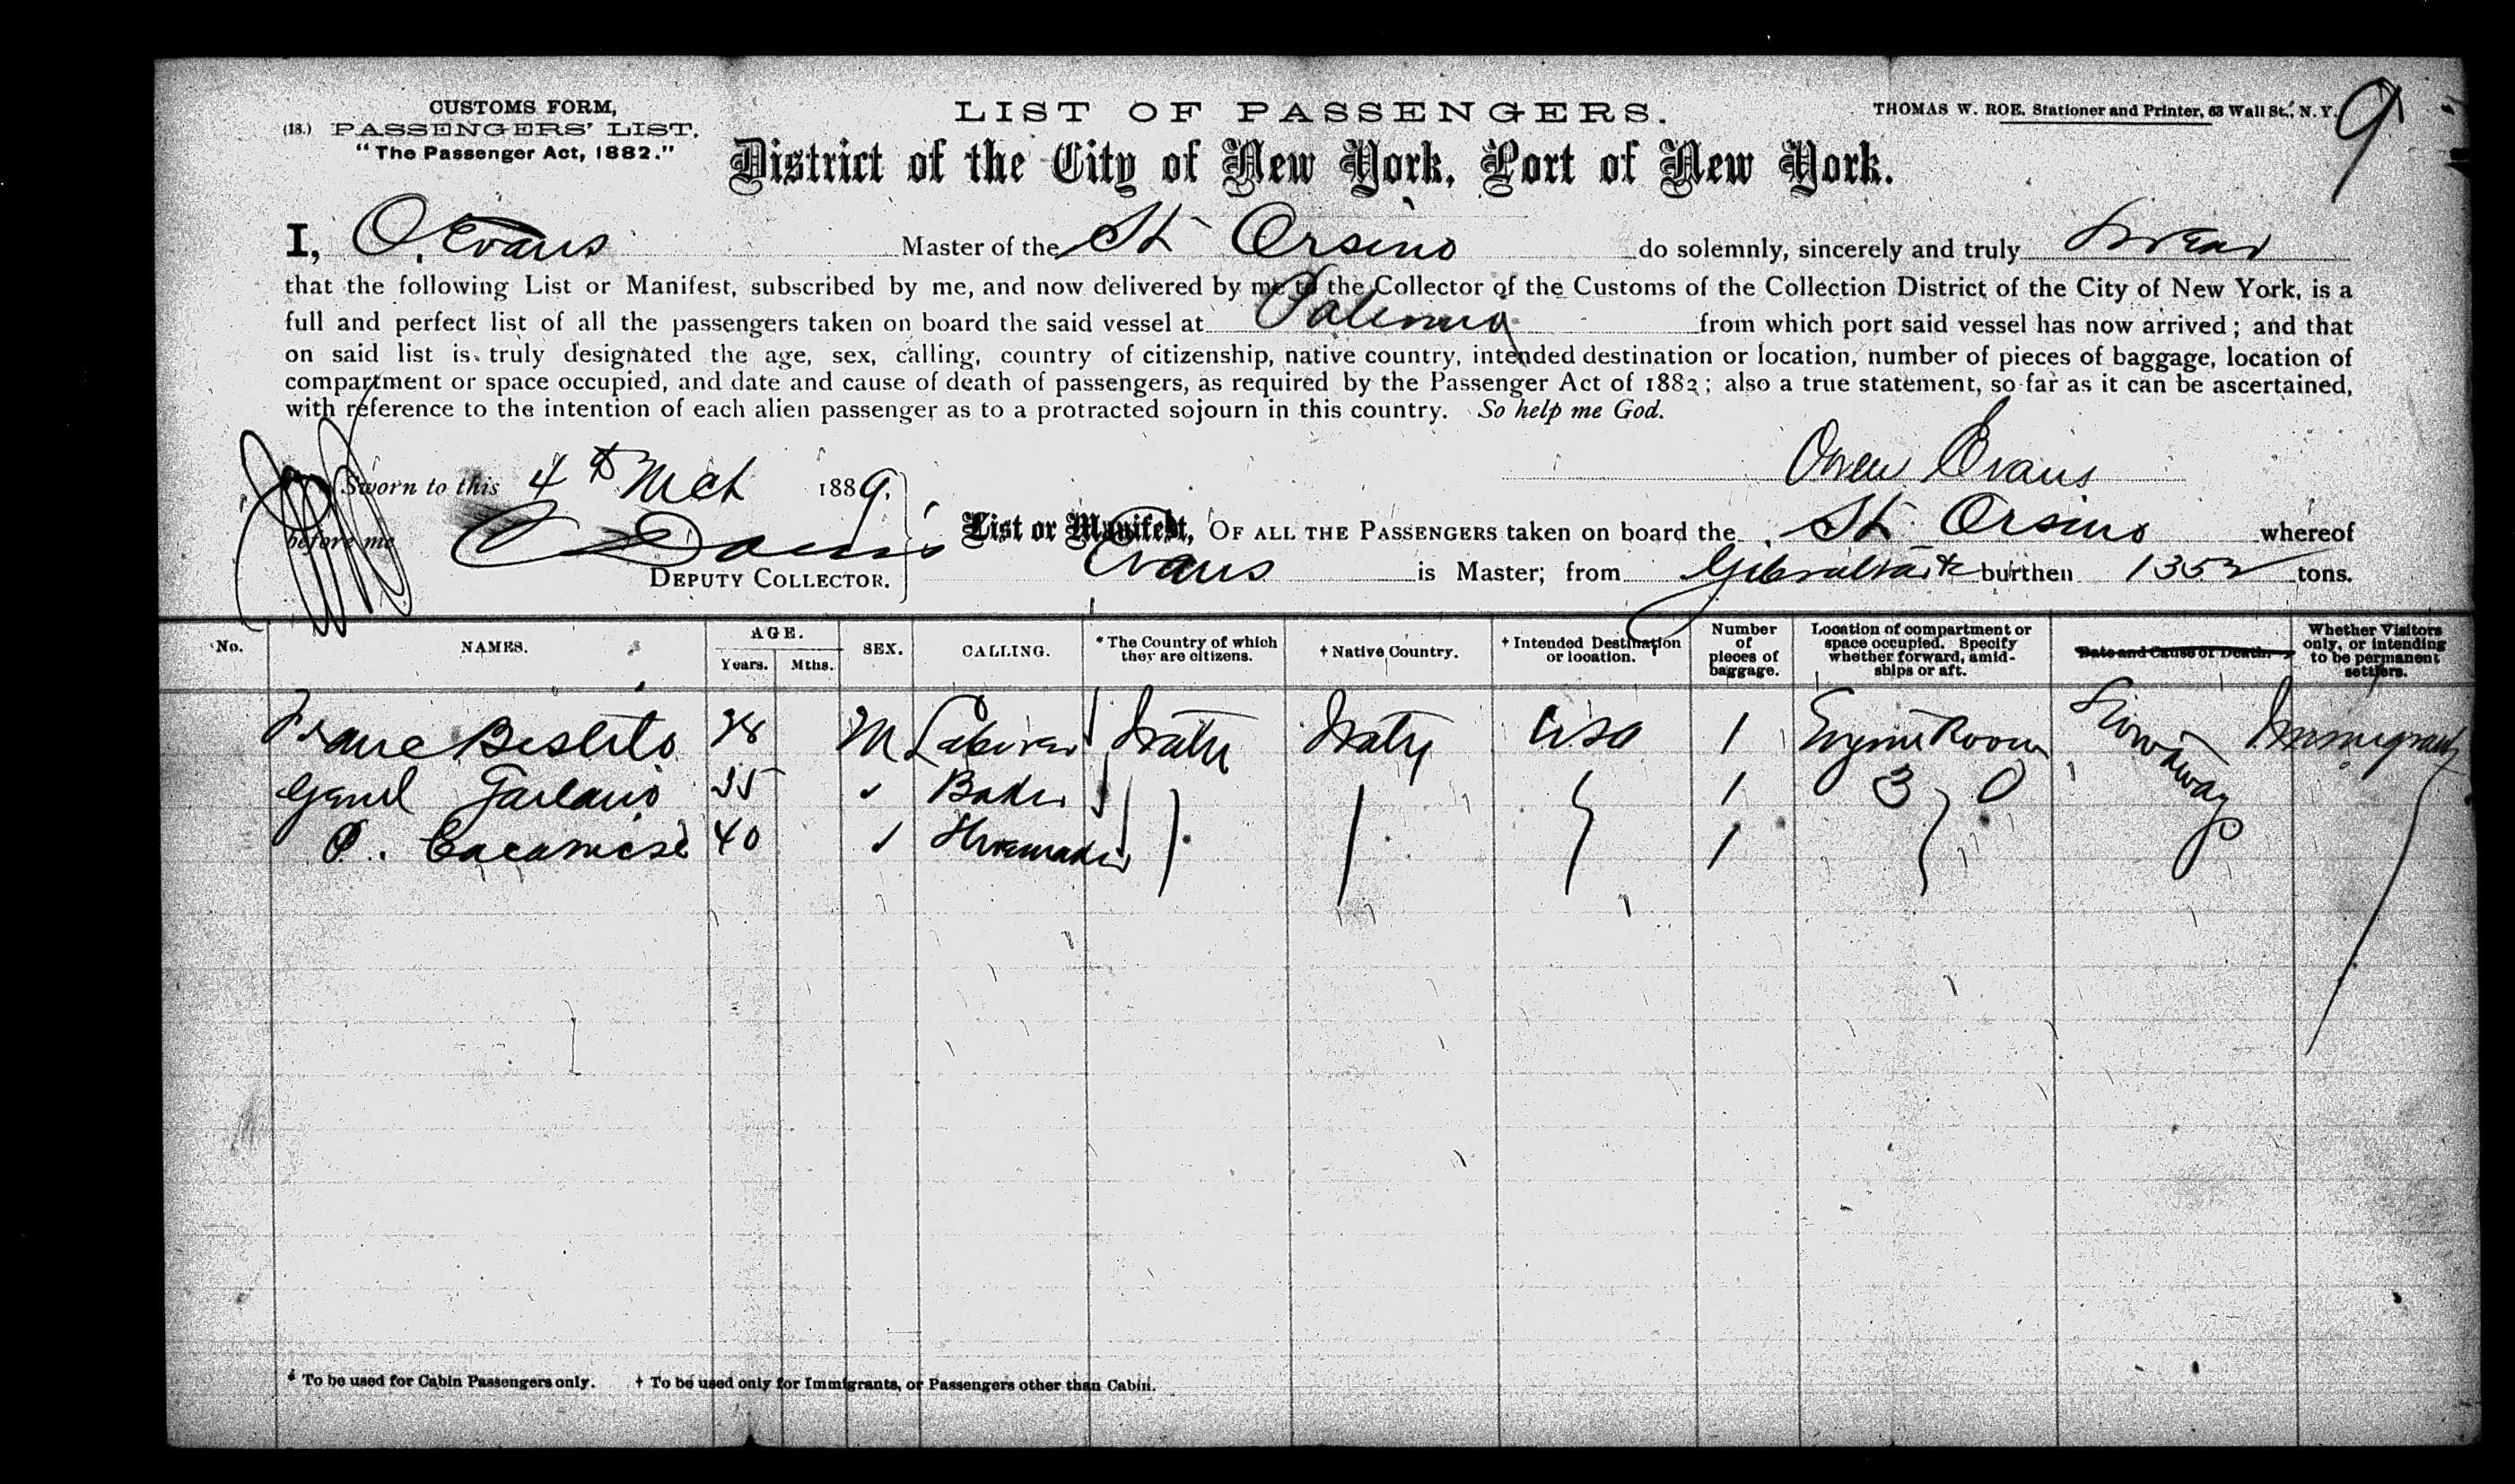 CUSTOMS FORM,
(18.) PASSENGERS' LIST,
"The Passenger Act, 1882."
LIST OF PASSENGERS.
THOMAS W. ROE, Stationer and Printer, 63 Wall St., N.Y.
9
District of the City of New York, Port of New York.
I, O. Evans Master of the St Orsino do solemnly, sincerely and truly swear
that the following List or Manifest, subscribed by me, and now delivered by me to the Collector of the Customs of the Collection District of the City of New York, is a
full and perfect list of all the passengers taken on board the said vessel at from which port said vessel has now arrived; and that
on said list is truly designated the age, sex, calling, country of citizenship, native country, intended destination or location, number of pieces of baggage, location of
compartment or space occupied, and date and cause of death of passengers, as required by the Passenger Act of 1882; also a true statement, so far as it can be ascertained,
with reference to the intention of each alien passenger as to a protracted sojourn in this country. So help me God.
Owen Evans
Sworn to this 4th Mch 1889.
before me Davis
DEPUTY COLLECTOR.
List or Manifest, OF ALL THE PASSENGERS taken on board the St Orsino whereof
Evans is Master; from Gibraltar burthen 1352 tons.
No. NAMES. AGE. Years. Mths. SEX. CALLING. * The Country of which they are citizens. † Native Country. † Intended Destination or location. Number of pieces of baggage. Location of compartment or space occupied. Specify whether forward, amidships or aft. Date and Cause of Death. Whether Visitors only, or intending to be permanent settlers.
28 M Laborer Italy Italy USA 1 Engine Room Stowaway Immigrants
35 Baker 1 3
P. 40 1
* To be used for Cabin Passengers only. † To be used only for Immigrants, or Passengers other than Cabin.